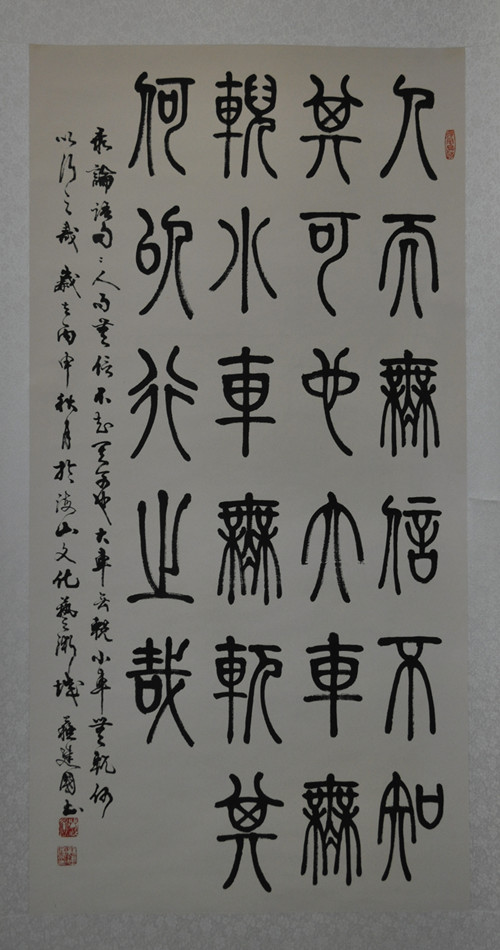 人而無信不知
其可也大車無
輗小車無軏其
何以行之哉
錄論語句人而無信不知其可也大車无輗小車無軏何
以行之哉 歲在丙申秋月於海山文化藝術城 國书